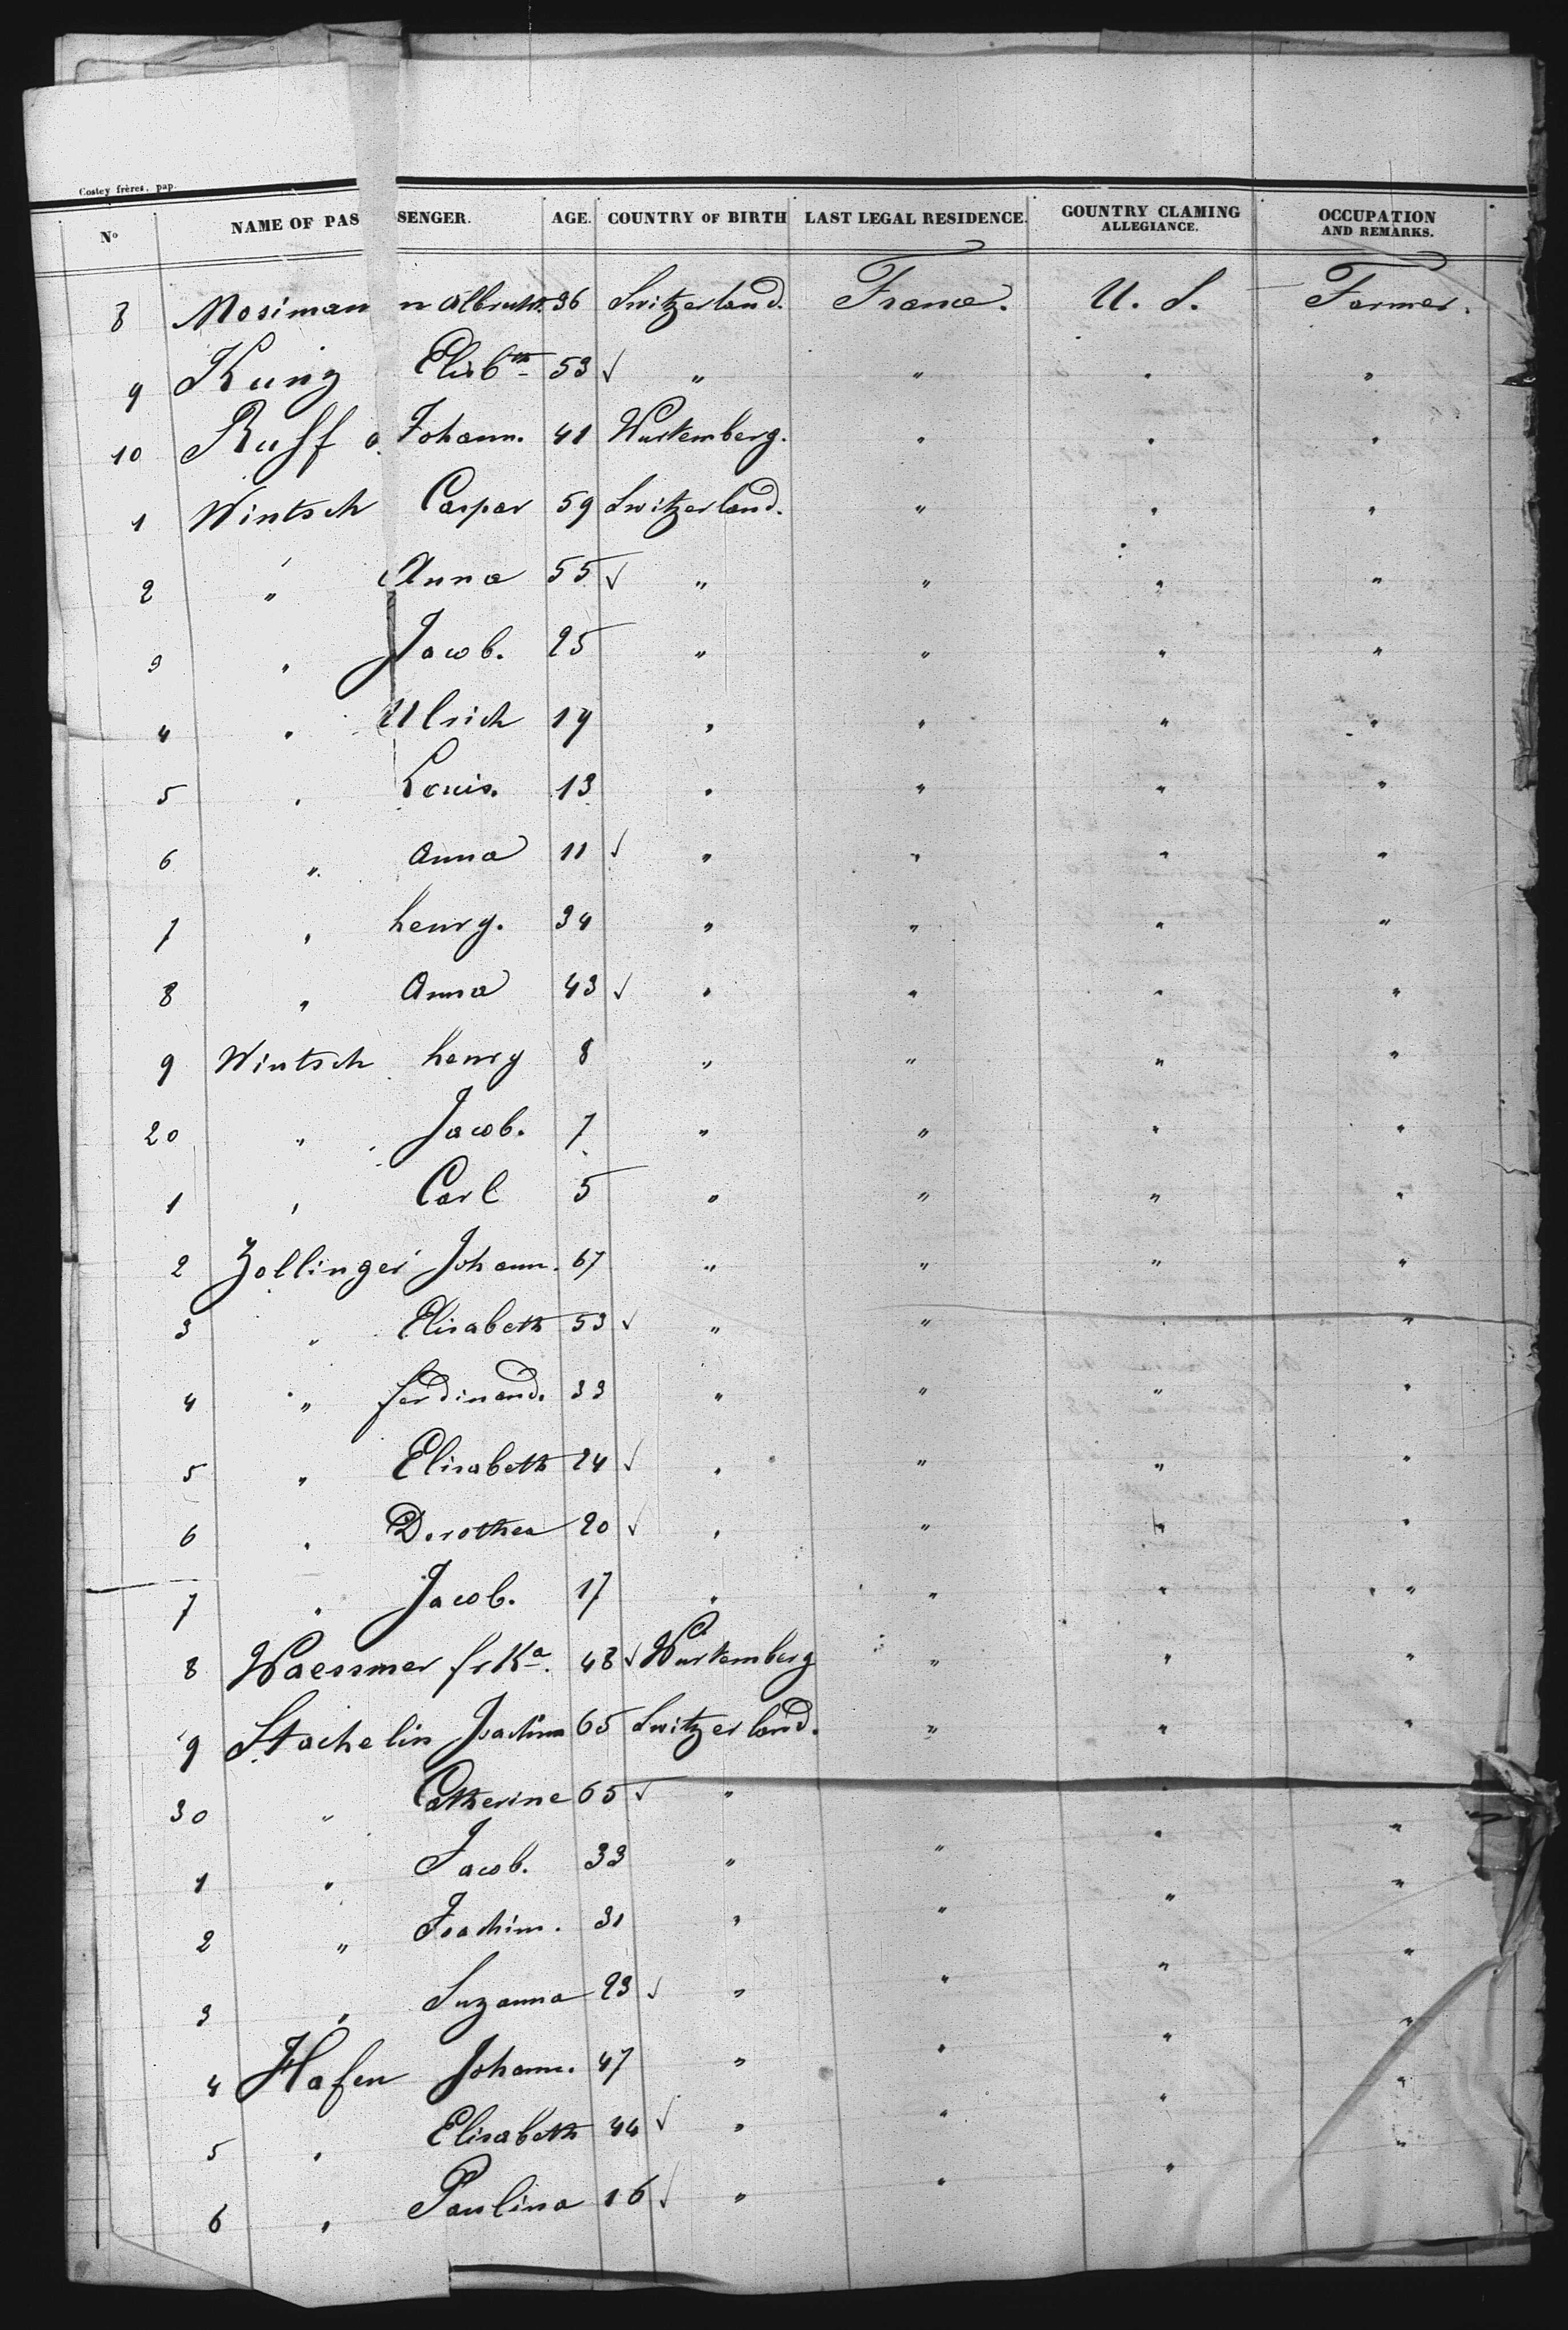 Costey frères, pap.
No NAME OF PASSENGER. AGE. COUNTRY OF BIRTH LAST LEGAL RESIDENCE. GOUNTRY CLAMING ALLEGIANCE. OCCUPATION AND REMARKS.
8 Mosimann Albrecht. 36 Switzerland. France. U. S. Farmer.
9 Kunz Elisbth 53 √ " " " "
10 Ruff Johann. 41 Wurtemberg. " " "
1 Wintsch Caspar 59 Switzerland. " " "
2 " Anna 55 √ " " " "
3 " Jacob. 25 " " " "
4 " Ulrich 19 " " " "
5 " Louis. 13 " " " "
6 " Anna 11 √ " " " "
7 " henry. 34 " " " "
8 " Anna 43 √ " " " "
9 Wintsch henry 8 " " " "
20 " Jacob. 7 " " " "
1 " Carl 5 " " " "
2 Zollinger Johann. 67 " " " "
3 " Elisabeth 53 √ " " " "
4 " ferdinand. 33 " " " "
5 " Elisabeth 24 √ " " " "
6 " Dorothea 20 √ " " " "
7 " Jacob. 17 " " " "
8 Waessmer frKa. 48 √ Wurtemberg " " "
9 Stachelin Joachim 65 Switzerland. " " "
30 " Catherine 65 √ " "
1 " Jacob. 33 " " " "
2 " Joachim. 31 " " " "
3 " Suzanna 23 √ " " " "
4 Hafen Johann. 47 " " " "
5 " Elisabeth 44 √ " " " "
6 " Paulina 16 √ " " " "